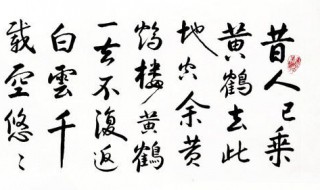 昔人已乘
黄鶴去此
地空余黄
鶴樓黄鶴
一去不復返
白雲千
載空悠〻